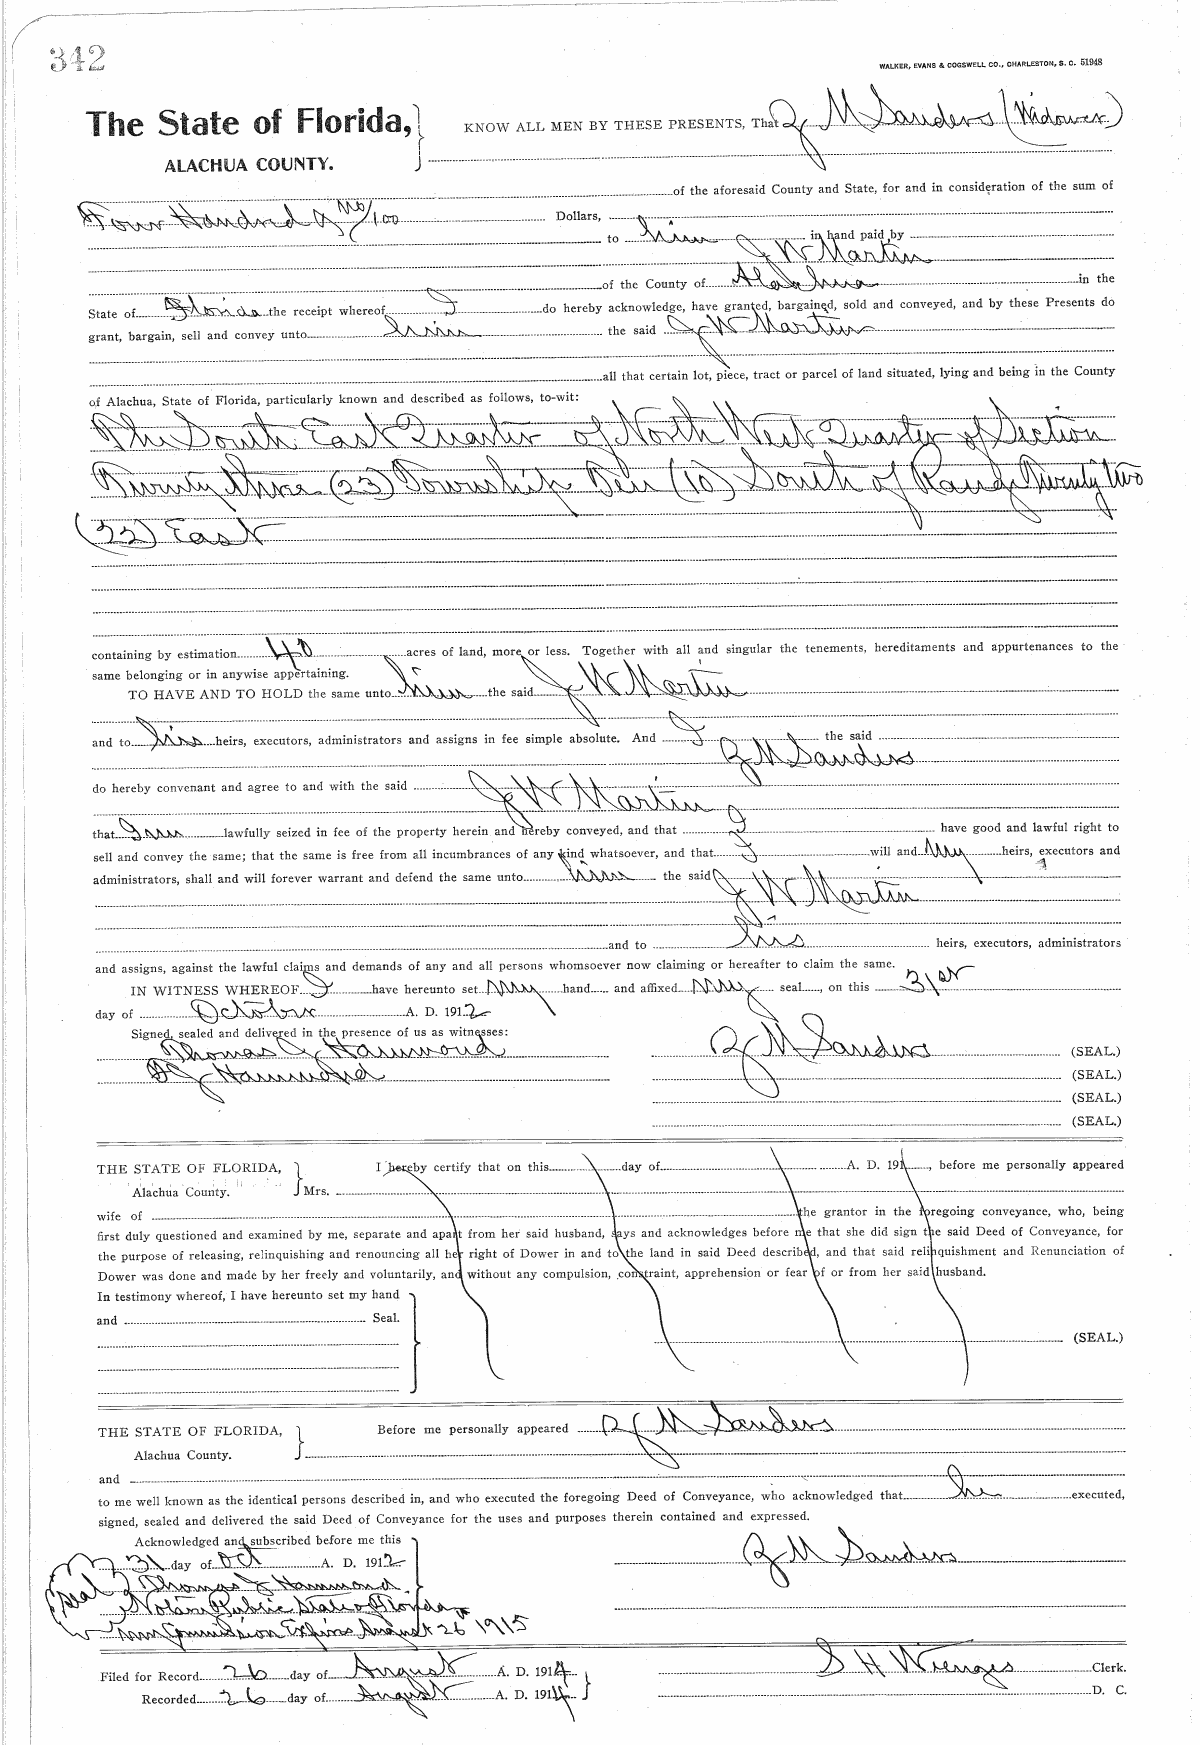 342
WALKER, EVANS & COGSWELL CO., CHARLESTON, S. C. 51948
The State of Florida,
ALACHUA COUNTY.
KNOW ALL MEN BY THESE PRESENTS, That M Sanders (Widower)
of the aforesaid County and State, for and in consideration of the sum of
Four Hundred & no/100 Dollars,
to him in hand paid by
J W Martin
of the County of Alachua in the
State of Florida the receipt whereof I do hereby acknowledge, have granted, bargained, sold and conveyed, and by these Presents do
grant, bargain, sell and convey unto him the said J W Martin
all that certain lot, piece, tract or parcel of land situated, lying and being in the County
of Alachua, State of Florida, particularly known and described as follows, to-wit:
The South East Quarter of North West Quarter of Section
Twenty three (23) Township Ten (10) South of Range Twenty two
(22) East
containing by estimation 40 acres of land, more or less. Together with all and singular the tenements, hereditaments and appurtenances to the
same belonging or in anywise appertaining.
TO HAVE AND TO HOLD the same unto him the said J W Martin
and to his heirs, executors, administrators and assigns in fee simple absolute. And I the said
M Sanders
do hereby convenant and agree to and with the said J W Martin
that I am lawfully seized in fee of the property herein and hereby conveyed, and that I have good and lawful right to
sell and convey the same; that the same is free from all incumbrances of any kind whatsoever, and that I will and my heirs, executors and
administrators, shall and will forever warrant and defend the same unto him the said J W Martin
and to his heirs, executors, administrators
and assigns, against the lawful claims and demands of any and all persons whomsoever now claiming or hereafter to claim the same.
IN WITNESS WHEREOF I have hereunto set my hand and affixed my seal, on this 31st
day of October A. D. 1912
Signed, sealed and delivered in the presence of us as witnesses:
Thomas J Hammond
Hammond
M Sanders (SEAL.)
(SEAL.)
(SEAL.)
(SEAL.)
THE STATE OF FLORIDA,
Alachua County.
I hereby certify that on this day of A. D. 191 , before me personally appeared
Mrs.
wife of the grantor in the foregoing conveyance, who, being
first duly questioned and examined by me, separate and apart from her said husband, says and acknowledges before me that she did sign the said Deed of Conveyance, for
the purpose of releasing, relinquishing and renouncing all her right of Dower in and to the land in said Deed described, and that said relinquishment and Renunciation of
Dower was done and made by her freely and voluntarily, and without any compulsion, constraint, apprehension or fear of or from her said husband.
In testimony whereof, I have hereunto set my hand
and Seal.
(SEAL.)
THE STATE OF FLORIDA,
Alachua County.
Before me personally appeared M Sanders
and
to me well known as the identical persons described in, and who executed the foregoing Deed of Conveyance, who acknowledged that he executed,
signed, sealed and delivered the said Deed of Conveyance for the uses and purposes therein contained and expressed.
Acknowledged and subscribed before me this
31 day of Oct A. D. 1912
M Sanders
Seal
Thomas J Hammond
Notary Public State of Florida
my Commission Expires August 26 1915
Filed for Record 26 day of August A. D. 1914
S H Wienges Clerk.
Recorded 26 day of August A. D. 1914
D. C.